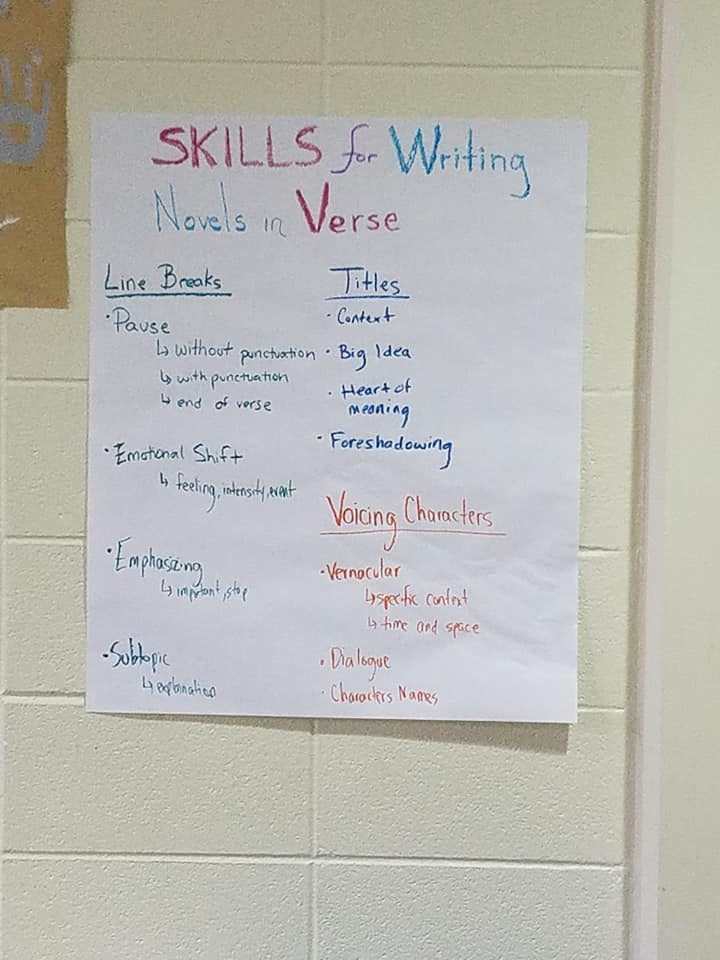 SKILLS for Writing
Novels in Verse
Line Breaks
·Pause
↳ without punctuation
↳ with punctuation
↳ end of verse
·Emotional Shift
↳ feeling, intensity, event
·Emphasizing
↳ important, stop
·Subtopic
↳ explanation
Titles
· Context
· Big Idea
· Heart of
meaning
· Foreshadowing
Voicing Characters
·Vernacular
↳ specific context
↳ time and space
· Dialogue
· Characters Names